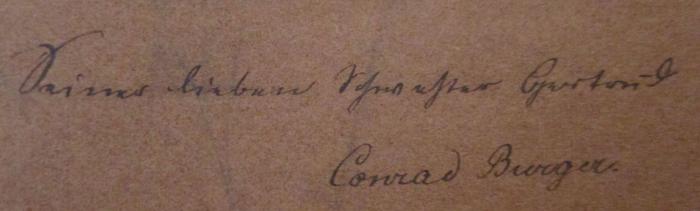 Seiner lieben Schwester Gertrud
Conrad Burger.